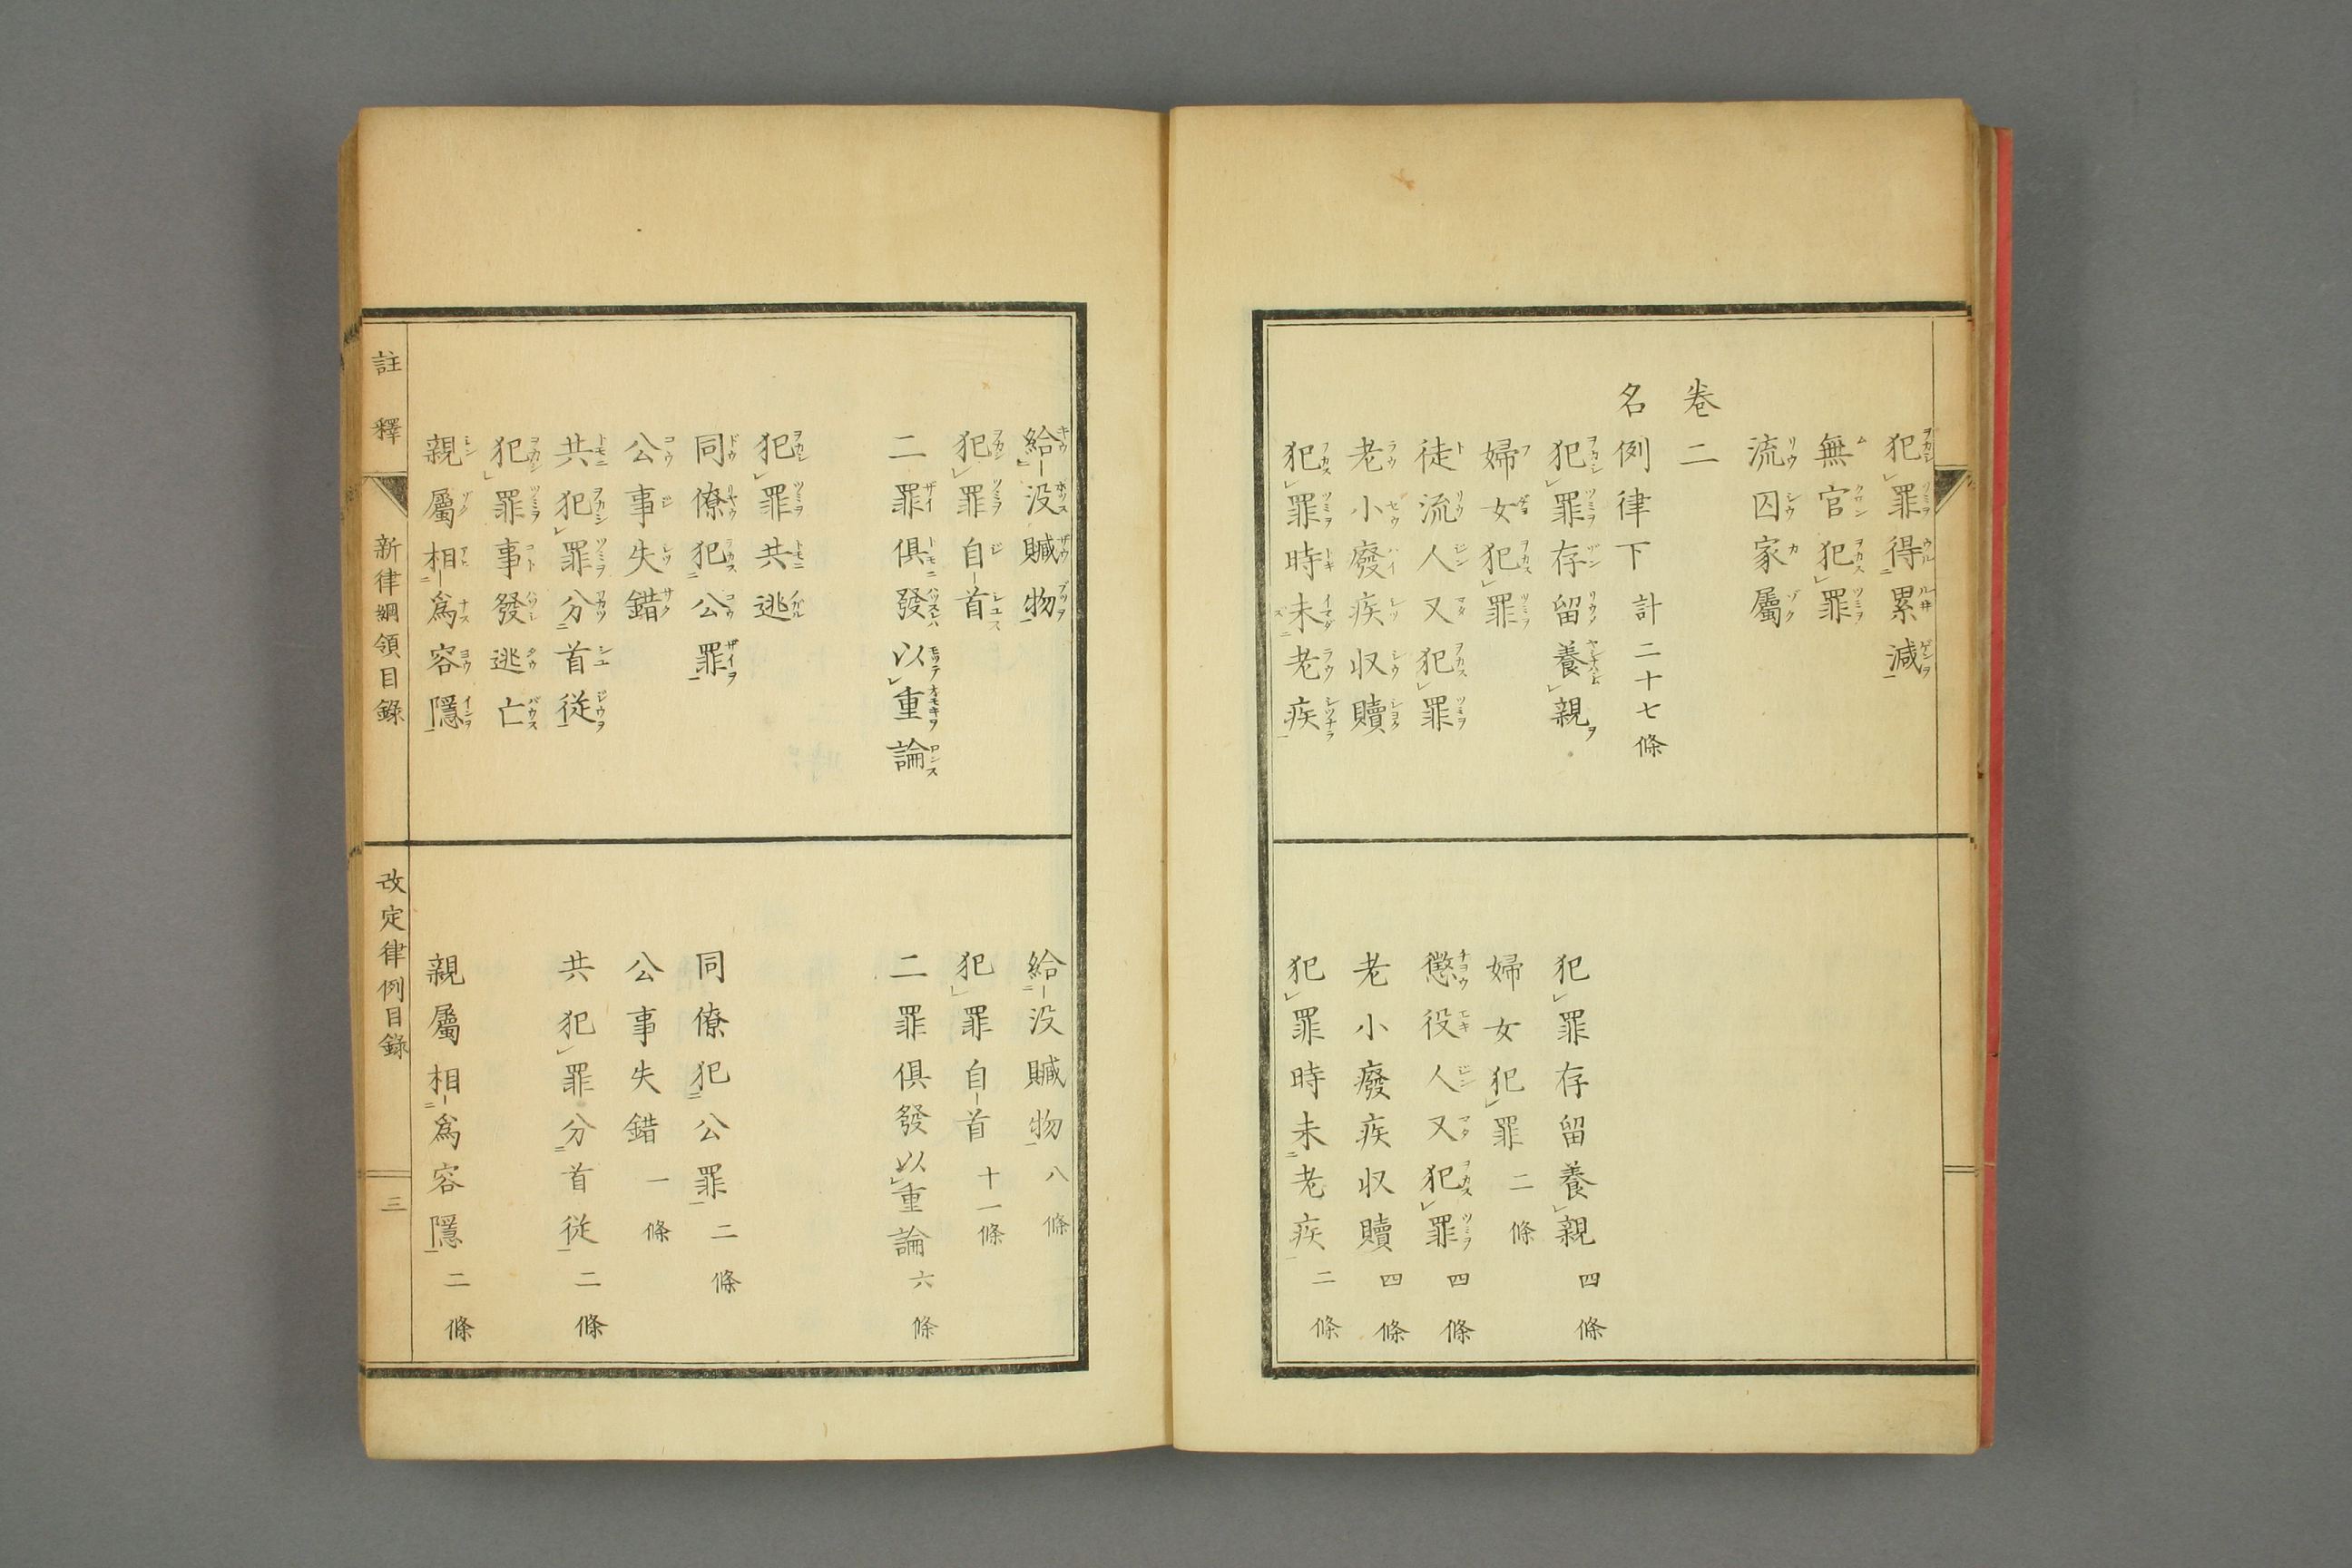 犯罪得累減
無官犯罪
流囚家屬
卷二
名例律下 計二十七條
犯罪存留養親
婦女犯罪
徒流人又犯罪
老小廢疾収贖
犯罪時未老疾
犯罪存留養親 四條
婦女犯罪 二條
懲役人又犯罪 四條
老小廢疾収贖 四條
犯罪時未老疾 二條
給没贓物
犯罪自首
二罪俱發以重論
犯罪共逃
同僚犯公罪
公事失錯
共犯罪分首従
犯罪事發逃亡
親屬相為容隱
給没贓物 八條
犯罪自首 十一條
二罪俱發以重論 六條
同僚犯公罪 二條
公事失錯 一條
共犯罪分首従 二條
親屬相為容隱 二條
註釋 新律綱領目錄 改定律例目錄 三